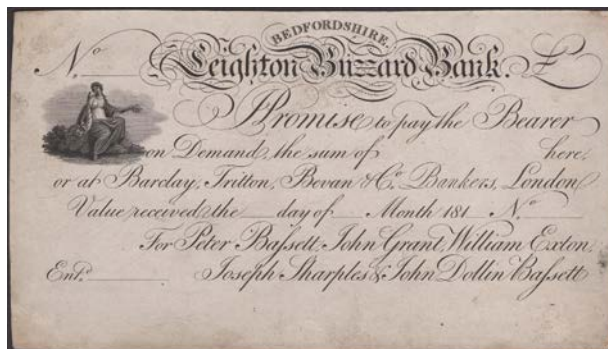 BEDFORDSHIRE.
No Leighton Buzzard Bank. £
I Promise to pay the Bearer
on Demand, the sum of here,
or at Barclay, Tritton, Bevan & Co. Bankers, London
Value received the day of Month 181 No
For Peter Bassett, John Grant, William Exton,
Entd. Joseph Sharples & John Dollin Bassett